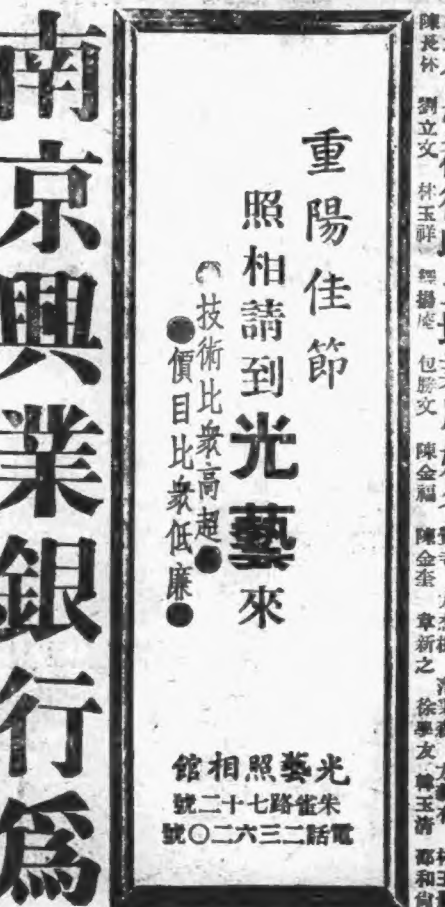 劉立文 林玉祥 包勝文 陳金福 陳金奎 章新之 徐學友 韓玉清
重陽佳節
照相請到光藝來
●技術比衆高超●
●價目比衆低廉●
光藝照相館
朱雀路七十二號
電話二三六二〇號
南京興業銀行爲